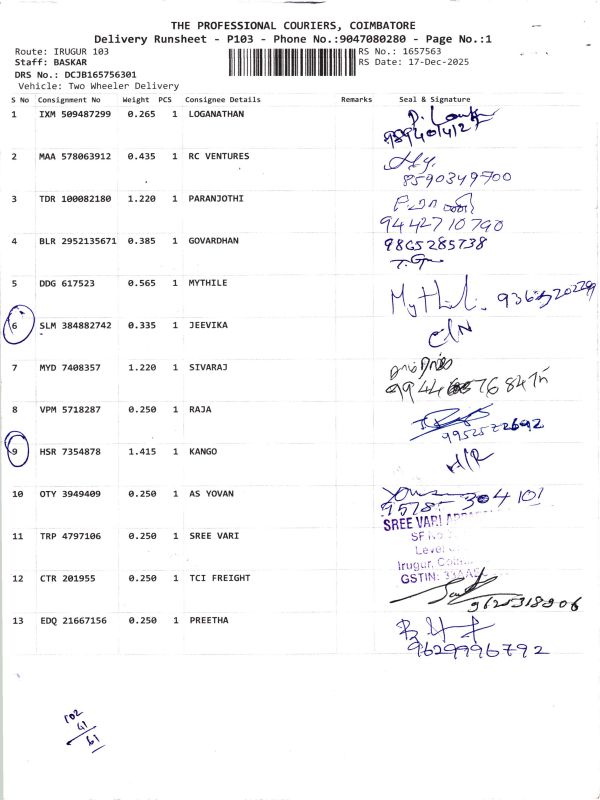 THE PROFESSIONAL COURIERS, COIMBATORE
Delivery Runsheet - P103 - Phone No.:9047080280 - Page No.:1
Route: IRUGUR 103 RS No.: 1657563
Staff: BASKAR RS Date: 17-Dec-2025
DRS No.: DCJB165756301
Vehicle: Two Wheeler Delivery
S No Consignment No Weight PCS Consignee Details Remarks Seal & Signature
1 IXM 509487299 0.265 1 LOGANATHAN
2 MAA 578063912 0.435 1 RC VENTURES
8590349700
3 TDR 100082180 1.220 1 PARANJOTHI
9442710790
4 BLR 2952135671 0.385 1 GOVARDHAN 9865285738
5 DDG 617523 0.565 1 MYTHILE
6 SLM 384882742 0.335 1 JEEVIKA C/N
7 MYD 7408357 1.220 1 SIVARAJ
8 VPM 5718287 0.250 1 RAJA
9952572692
9 HSR 7354878 1.415 1 KANGO A/R
10 OTY 3949409 0.250 1 AS YOVAN
304101
SREE VARI
11 TRP 4797106 0.250 1 SREE VARI SF No
Irugur,
12 CTR 201955 0.250 1 TCI FREIGHT GSTIN: 33AAS
9625318906
13 EDQ 21667156 0.250 1 PREETHA
9629996792
102
41
61